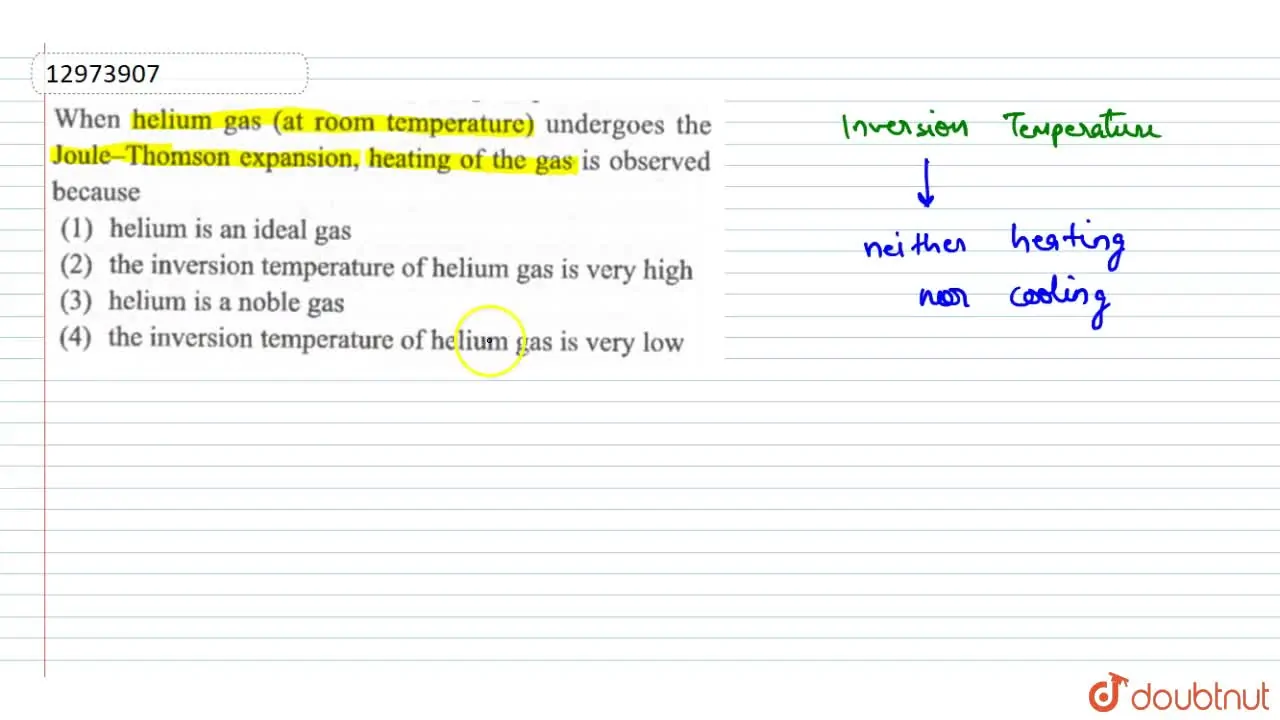 12973907
When helium gas (at room temperature) undergoes the
Joule–Thomson expansion, heating of the gas is observed
because
(1) helium is an ideal gas
(2) the inversion temperature of helium gas is very high
(3) helium is a noble gas
(4) the inversion temperature of helium gas is very low
Inversion Temperature
neither heating
nor cooling
doubtnut